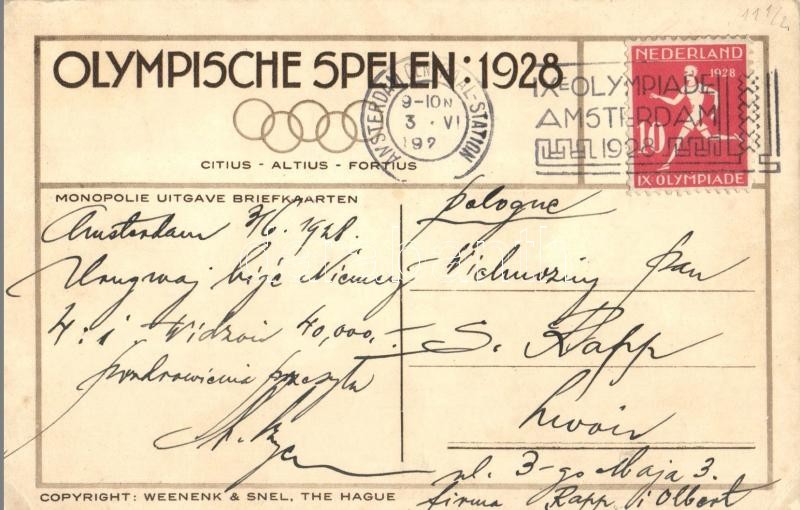 11 1/2
OLYMPISCHE SPELEN: 1928
CITIUS - ALTIUS - FORTIUS
AMSTERDAM CENTRAAL-STATION
9-10N
3 · VI
192
IXE OLYMPIADE
AMSTERDAM
1928
NEDERLAND
1928
10
IX. OLYMPIADE
MONOPOLIE UITGAVE BRIEFKAARTEN
Amsterdam 3/6. 1928.
Urugwaj bije Niemcy
4:1 Widzów 40,000.-
pozdrowienia przesyła
Pologne
Wielmożny Pan
S. Rapp
Lwów
ul. 3-go Maja 3.
firma Rapp i Olbert
COPYRIGHT: WEENENK & SNEL, THE HAGUE